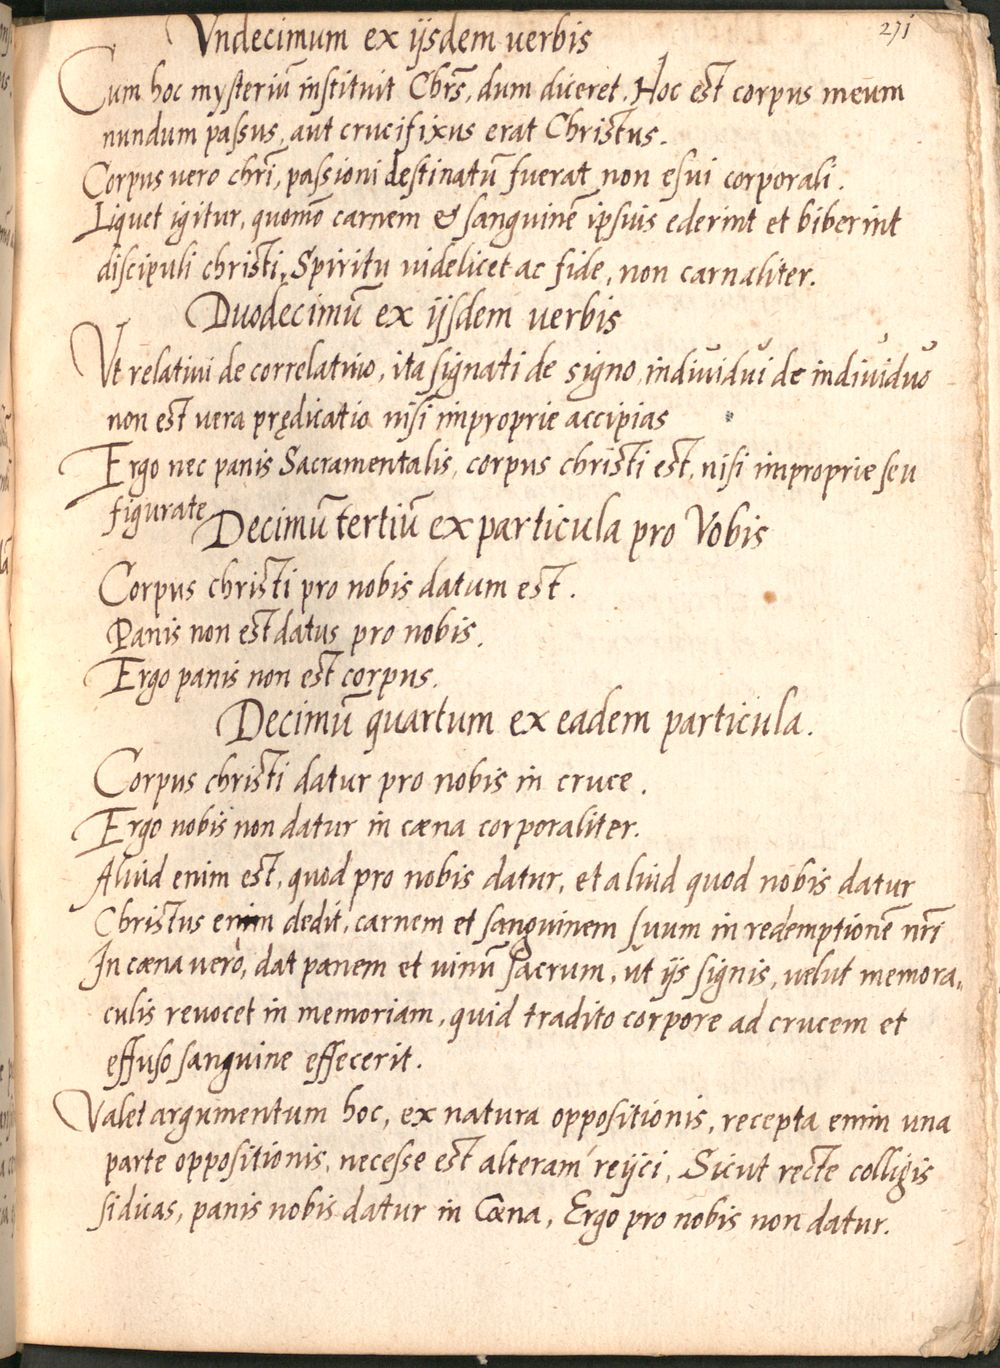 271
Vndecimum ex ijsdem uerbis
Cum hoc mysteriū instituit Chrs̄, dum diceret. Hoc est corpus meum
nundum passus, aut crucifixus erat Christus.
Corpus uero chrī, passioni destinatū fuerat non esui corporali.
Liquet igitur, quomō carnem & sanguinē ipsius ederint et biberint
discipuli christi, Spiritu uidelicet ac fide, non carnaliter.
Duodecimū ex ijsdem uerbis
Vt relatiui de correlatiuo, ita signati de signo, indiuidui de indiuiduo
non est uera prędicatio nisi improprie accipias
Ergo nec panis Sacramentalis, corpus christi est, nisi improprie seu
figurate
Decimū tertiū ex particula pro Vobis
Corpus christi pro nobis datum est.
Panis non est datus pro nobis.
Ergo panis non est corpus.
Decimū quartum ex eadem particula.
Corpus christi datur pro nobis in cruce.
Ergo nobis non datur in cæna corporaliter.
Aliud enim est, quod pro nobis datur, et aliud quod nobis datur
Christus enim dedit, carnem et sanguinem suum in redemptionē nrī
In cæna uerò, dat panem et uinū sacrum, ut ijs signis, uelut memora„
culis reuocet in memoriam, quid tradito corpore ad crucem et
effuso sanguine effecerit.
Valet argumentum hoc, ex natura oppositionis, recepta enim una
parte oppositionis, necesse est alteram reijci, Sicut recte colligis
si dicas, panis nobis datur in Cœna, Ergo pro nobis non datur.